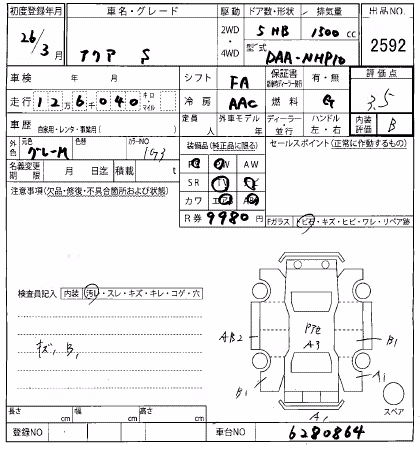 初度登録年月 車名・グレード 駆動 ドア数・形状 排気量 出品NO.
26年 3月 アクア S 2WD・4WD 5 HB 1500cc 2592
型式 DAA-NHP10
車検 年 月 シフト FA 保証書 有・無 評価点
走行 12万6千040 キロ・マイル 冷房 AAC 燃料 G 3.5
車歴 自家用・レンタ・事業用( ) 定員 人 外車モデル 年 ディーラー・並行 ハンドル 左・右 内装評価 B
外色 元色 グレーM 色替 カラーNO 1G3 装備品(純正品に限る) セールスポイント(正常に作動するもの)
名義変更期限 月 日迄 積載 t
AW
注意事項(欠品・修復・不具合箇所および状態) SR
カワ
R券 9980円
Fガラス トビ石・キズ・ヒビ・ワレ・リペア跡
検査員記入 内装 汚レ・スレ・キズ・キレ・コゲ・穴
キズ, B1
AB2
Pte
A3
B1
B1
A1
A1
スペア
長さ cm 幅 cm 高さ cm
登録NO 車台NO 6280864